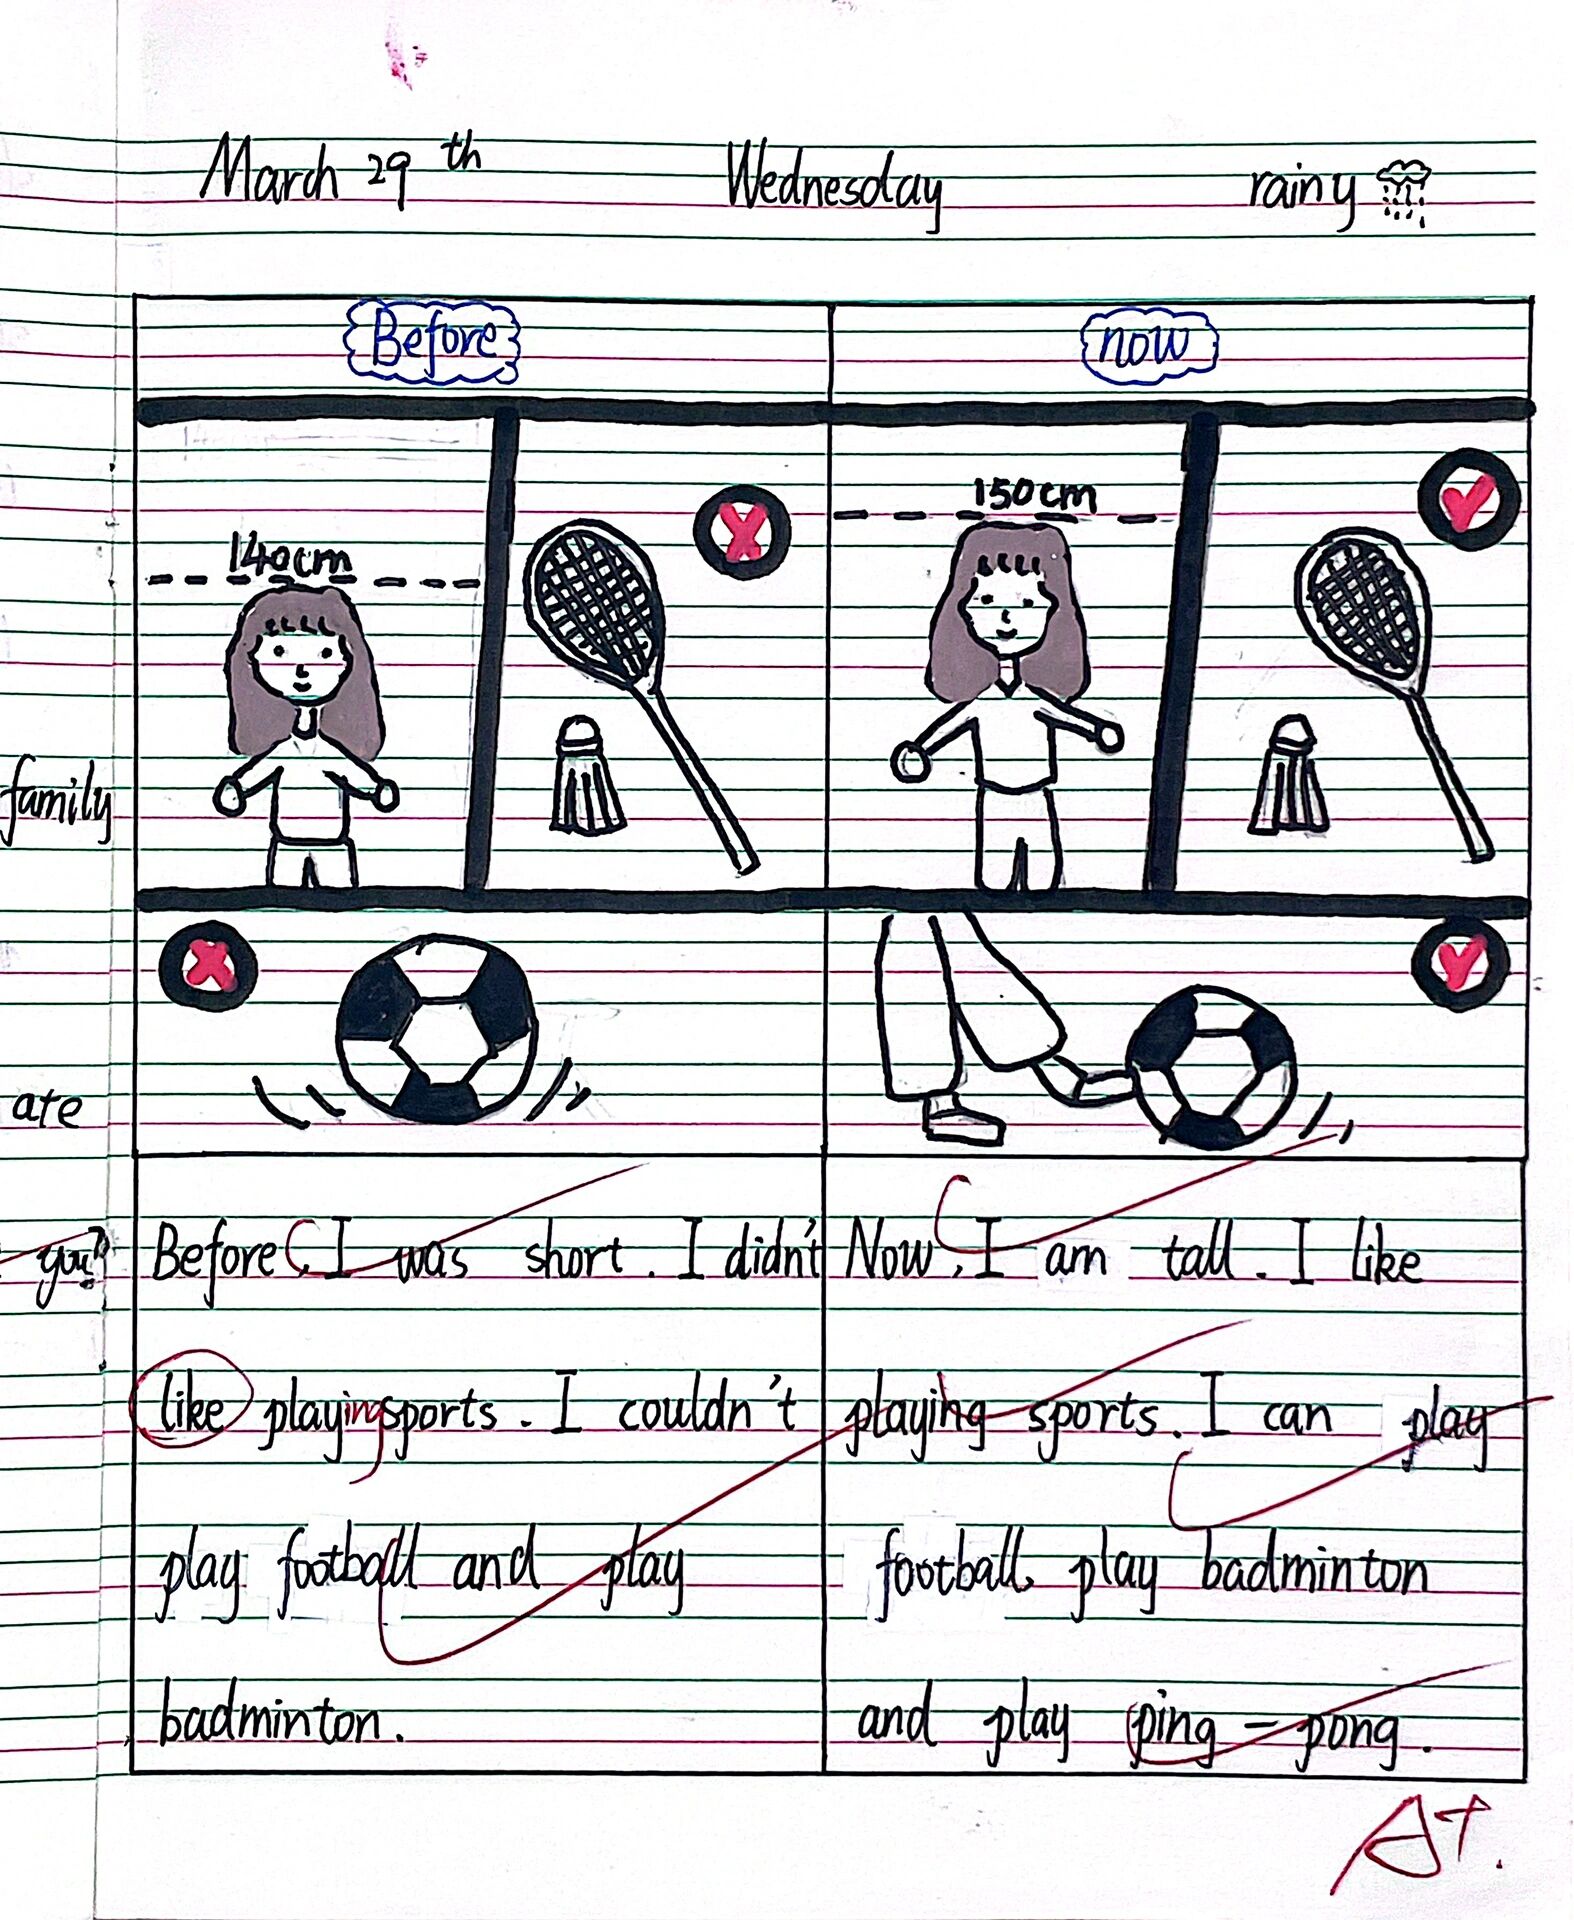 March 29th Wednesday rainy
Before now
140cm 150cm
family
ate
you?
Before, I was short. I didn't
like playing sports. I couldn't
play football and play
badminton.
Now, I am tall. I like
playing sports. I can play
football, play badminton
and play ping-pong.
A+.